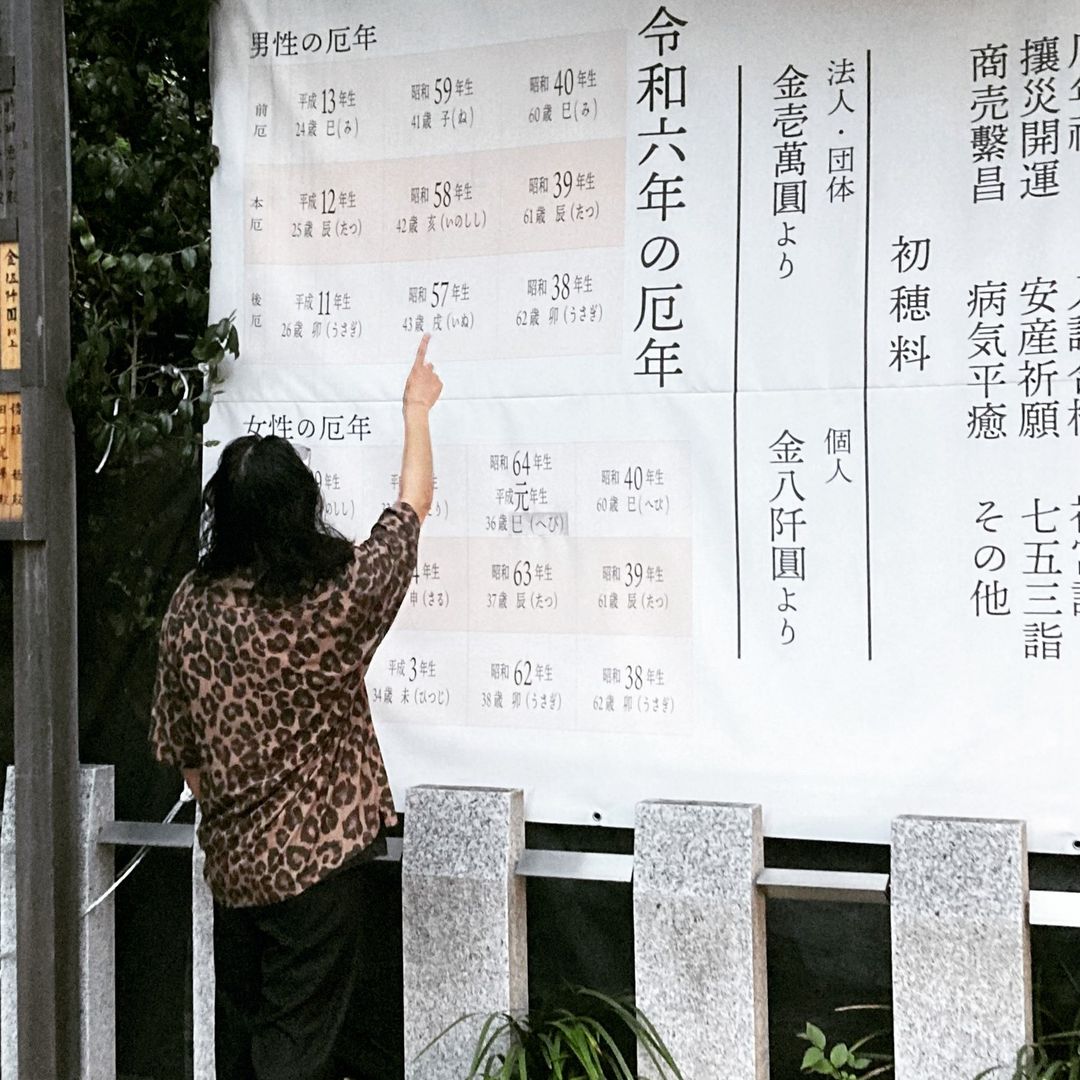 厄年祓
攘災開運　安産祈願　七五三詣
商売繫昌　病気平癒　その他
初穂料
法人・団体
金壱萬圓より
個人
金八阡圓より
令和六年の厄年
男性の厄年
前厄
平成13年生
24歳 巳(み)
昭和59年生
41歳 子(ね)
昭和40年生
60歳 巳(み)
本厄
平成12年生
25歳 辰(たつ)
昭和58年生
42歳 亥(いのしし)
昭和39年生
61歳 辰(たつ)
後厄
平成11年生
26歳 卯(うさぎ)
昭和57年生
43歳 戌(いぬ)
昭和38年生
62歳 卯(うさぎ)
女性の厄年
年生
のしし)
昭和64年生
平成元年生
36歳 巳(へび)
昭和40年生
60歳 巳(へび)
4年生
申(さる)
昭和63年生
37歳 辰(たつ)
昭和39年生
61歳 辰(たつ)
平成3年生
34歳 未(ひつじ)
昭和62年生
38歳 卯(うさぎ)
昭和38年生
62歳 卯(うさぎ)